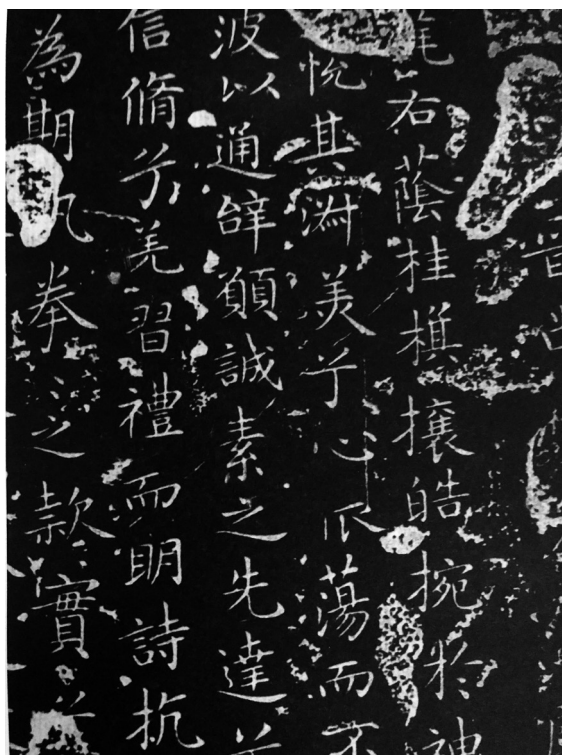 旄右蔭桂旗攘皓捥於神
悅其淑美兮心振蕩而不
波以通辭願誠素之先達兮
信脩兮羌習禮而明詩抗
為期執拳〻之款實兮